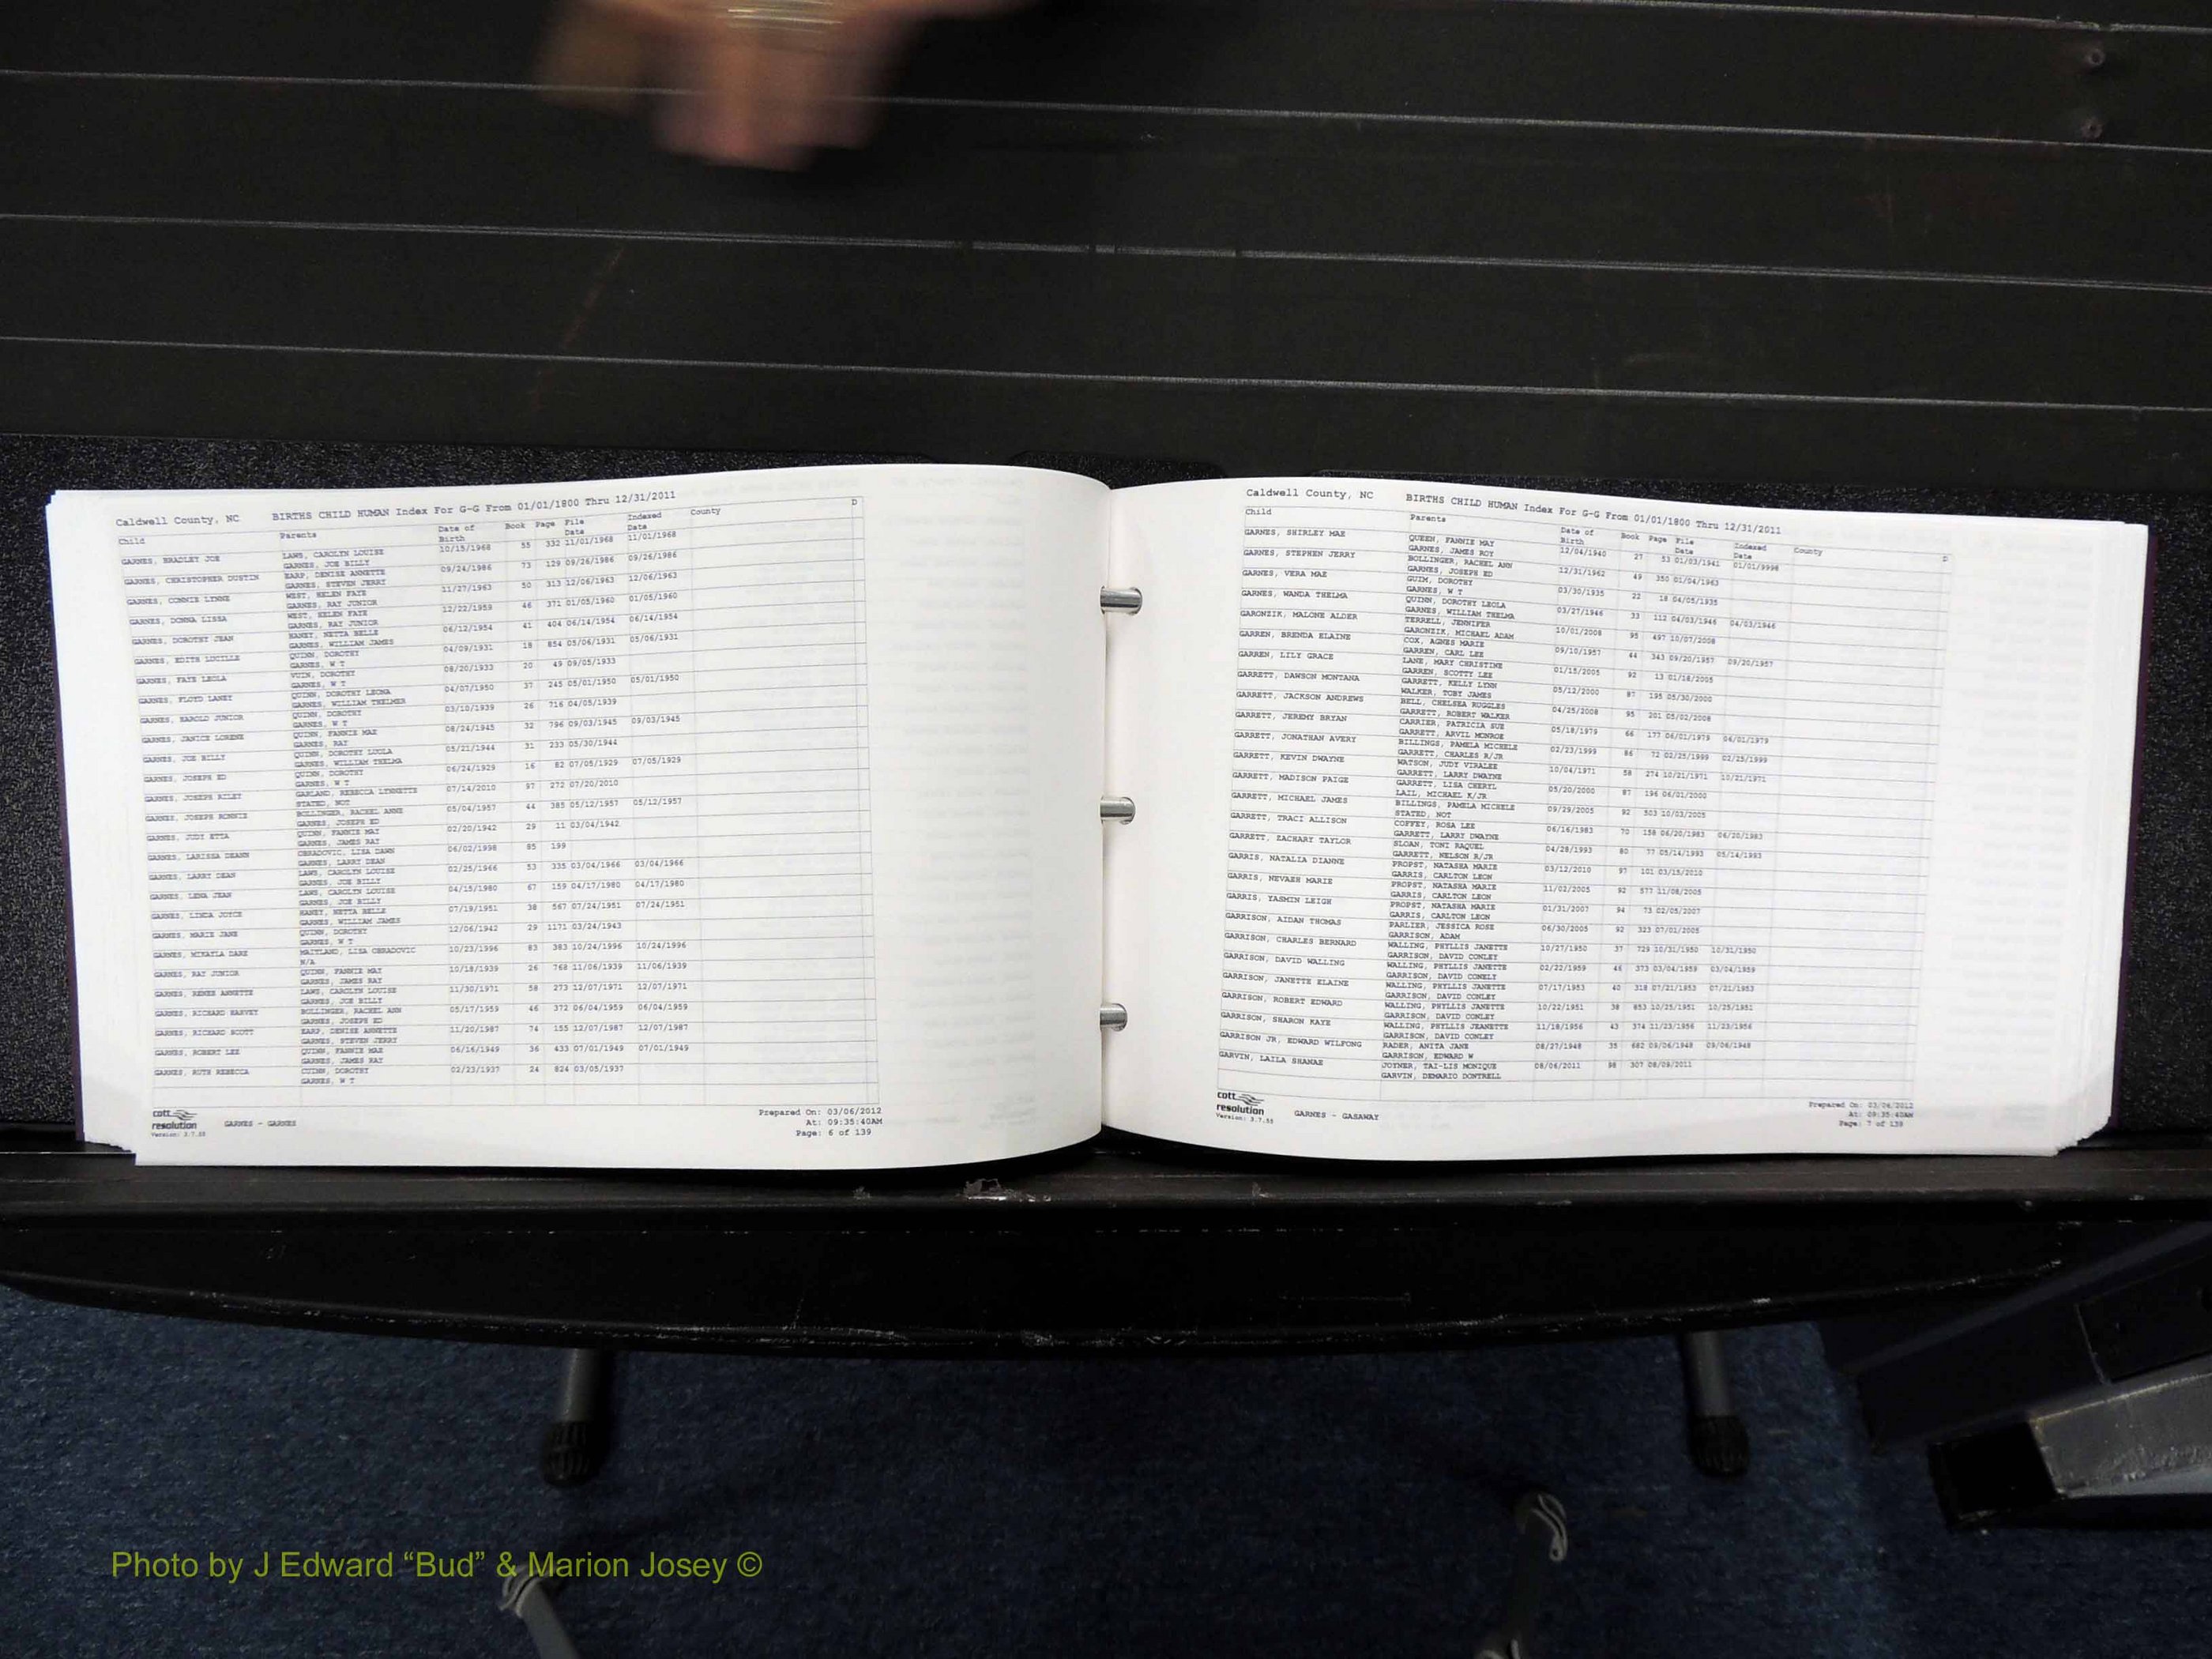 Caldwell County, NC BIRTHS CHILD HUMAN Index For G-G From 01/01/1800 Thru 12/31/2011
Child Parents Date of Birth Book Page File Date Indexed Date County D
GARNES, BRADLEY JOE LAWS, CAROLYN LOUISE 10/15/1968 55 332 11/01/1968 11/01/1968
GARNES, JOE BILLY
GARNES, CHRISTOPHER DUSTIN EARP, DENISE ANNETTE 09/24/1986 73 129 09/26/1986 09/26/1986
GARNES, STEVEN JERRY
GARNES, CONNIE LYNNE WEST, HELEN FAYE 11/27/1963 50 313 12/06/1963 12/06/1963
GARNES, RAY JUNIOR
GARNES, DONNA LISSA WEST, HELEN FAYE 12/22/1959 46 371 01/05/1960 01/05/1960
GARNES, RAY JUNIOR
GARNES, DOROTHY JEAN HANEY, NETTA BELLE 06/12/1954 41 404 06/14/1954 06/14/1954
GARNES, WILLIAM JAMES
GARNES, EDITH LUCILLE QUINN, DOROTHY 04/09/1931 18 854 05/06/1931 05/06/1931
GARNES, W T
GARNES, FAYE LEOLA VUIN, DOROTHY 08/20/1933 20 49 09/05/1933
GARNES, W T
GARNES, FLOYD LANEY QUINN, DOROTHY LEONA 04/07/1950 37 245 05/01/1950 05/01/1950
GARNES, WILLIAM THELMER
GARNES, HAROLD JUNIOR QUINN, DOROTHY 03/10/1939 26 716 04/05/1939
GARNES, W T
GARNES, JANICE LORENE QUINN, FANNIE MAE 08/24/1945 32 796 09/03/1945 09/03/1945
GARNES, RAY
GARNES, JOE BILLY QUINN, DOROTHY LUOLA 05/21/1944 31 233 05/30/1944
GARNES, WILLIAM THELMA
GARNES, JOSEPH ED QUINN, DOROTHY 06/24/1929 16 82 07/05/1929 07/05/1929
GARNES, W T
GARNES, JOSEPH RILEY GARLAND, REBECCA LYNNETTE 07/14/2010 97 272 07/20/2010
STATED, NOT
GARNES, JOSEPH RONNIE BOLLINGER, RACHEL ANNE 05/04/1957 44 385 05/12/1957 05/12/1957
GARNES, JOSEPH ED
GARNES, JUDY ETTA QUINN, FANNIE MAY 02/20/1942 29 11 03/04/1942
GARNES, JAMES RAY
GARNES, LARISSA DEANN OBRADOVIC, LISA DAWN 06/02/1998 85 199
GARNES, LARRY DEAN
GARNES, LARRY DEAN LAWS, CAROLYN LOUISE 02/25/1966 53 335 03/04/1966 03/04/1966
GARNES, JOE BILLY
GARNES, LENA JEAN LAWS, CAROLYN LOUISE 04/15/1980 67 159 04/17/1980 04/17/1980
GARNES, JOE BILLY
GARNES, LINDA JOYCE HANEY, NETTA BELLE 07/19/1951 38 567 07/24/1951 07/24/1951
GARNES, WILLIAM JAMES
GARNES, MARIE JANE QUINN, DOROTHY 12/06/1942 29 1171 03/24/1943
GARNES, W T
GARNES, MIKAYLA DARE MAITLAND, LISA OBRADOVIC 10/23/1996 83 383 10/24/1996 10/24/1996
N/A
GARNES, RAY JUNIOR QUINN, FANNIE MAY 10/18/1939 26 768 11/06/1939 11/06/1939
GARNES, JAMES RAY
GARNES, RENEE ANNETTE LAWS, CAROLYN LOUISE 11/30/1971 58 273 12/07/1971 12/07/1971
GARNES, JOE BILLY
GARNES, RICHARD HARVEY BOLLINGER, RACHEL ANN 05/17/1959 46 372 06/04/1959 06/04/1959
GARNES, JOSEPH ED
GARNES, RICHARD SCOTT EARP, DENISE ANNETTE 11/20/1987 74 155 12/07/1987 12/07/1987
GARNES, STEVEN JERRY
GARNES, ROBERT LEE QUINN, FANNIE MAE 06/16/1949 36 433 07/01/1949 07/01/1949
GARNES, JAMES RAY
GARNES, RUTH REBECCA DOROTHY 02/23/1937 24 824 03/05/1937
GARNES, W T
cott
resolution
Version: 3.7.55
GARNES - GARNES
Prepared On: 03/06/2012
At: 09:35:40AM
Page: 6 of 139
Caldwell County, NC BIRTHS CHILD HUMAN Index For G-G From 01/01/1800 Thru 12/31/2011
Child Parents Date of Birth Book Page File Date Indexed Date County D
GARNES, SHIRLEY MAE QUEEN, FANNIE MAY 12/04/1940 27 53 01/03/1941 01/01/9998
GARNES, JAMES ROY
GARNES, STEPHEN JERRY BOLLINGER, RACHEL ANN 12/31/1962 49 350 01/04/1963
GARNES, JOSEPH ED
GARNES, VERA MAE GUIM, DOROTHY 03/30/1935 22 18 04/05/1935
GARNES, W T
GARNES, WANDA THELMA QUINN, DOROTHY LEOLA 03/27/1946 33 112 04/03/1946 04/03/1946
GARNES, WILLIAM THELMA
GARONZIK, MALONE ALDER TERRELL, JENNIFER 10/01/2008 95 497 10/07/2008
GARONZIK, MICHAEL ADAM
GARREN, BRENDA ELAINE COX, AGNES MARIE 09/10/1957 44 343 09/20/1957 09/20/1957
GARREN, CARL LEE
GARREN, LILY GRACE LANE, MARY CHRISTINE 01/15/2005 92 13 01/18/2005
GARREN, SCOTTY LEE
GARRETT, DAWSON MONTANA GARRETT, KELLY LYNN 05/12/2000 87 195 05/30/2000
WALKER, TOBY JAMES
GARRETT, JACKSON ANDREWS BELL, CHELSEA RUGGLES 04/25/2008 95 201 05/02/2008
GARRETT, ROBERT WALKER
GARRETT, JEREMY BRYAN CARRIER, PATRICIA SUE 05/18/1979 66 177 06/01/1979 06/01/1979
GARRETT, ARVIL MONROE
GARRETT, JONATHAN AVERY BILLINGS, PAMELA MICHELE 02/23/1999 86 72 02/25/1999 02/25/1999
GARRETT, CHARLES R/JR
GARRETT, KEVIN DWAYNE WATSON, JUDY VIRALEE 10/04/1971 58 274 10/21/1971 10/21/1971
GARRETT, LARRY DWAYNE
GARRETT, MADISON PAIGE GARRETT, LISA CHERYL 05/20/2000 87 196 06/01/2000
LAIL, MICHAEL K/JR
GARRETT, MICHAEL JAMES BILLINGS, PAMELA MICHELE 09/29/2005 92 503 10/03/2005
STATED, NOT
GARRETT, TRACI ALLISON COFFEY, ROSA LEE 06/16/1983 70 158 06/20/1983 06/20/1983
GARRETT, LARRY DWAYNE
GARRETT, ZACHARY TAYLOR SLOAN, TONI RAQUEL 04/28/1993 80 77 05/14/1993 05/14/1993
GARRETT, NELSON R/JR
GARRIS, NATALIA DIANNE PROPST, NATASHA MARIE 03/12/2010 97 101 03/15/2010
GARRIS, CARLTON LEON
GARRIS, NEVAEH MARIE PROPST, NATASHA MARIE 11/02/2005 92 577 11/08/2005
GARRIS, CARLTON LEON
GARRIS, YASMIN LEIGH PROPST, NATASHA MARIE 01/31/2007 94 73 02/05/2007
GARRIS, CARLTON LEON
GARRISON, AIDAN THOMAS PARLIER, JESSICA ROSE 06/30/2005 92 323 07/01/2005
GARRISON, ADAM
GARRISON, CHARLES BERNARD WALLING, PHYLLIS JANETTE 10/27/1950 37 729 10/31/1950 10/31/1950
GARRISON, DAVID CONLEY
GARRISON, DAVID WALLING WALLING, PHYLLIS JANETTE 02/22/1959 46 373 03/04/1959 03/04/1959
GARRISON, DAVID CONELY
GARRISON, JANETTE ELAINE WALLING, PHYLLIS JANETTE 07/17/1953 40 318 07/21/1953 07/21/1953
GARRISON, DAVID CONLEY
GARRISON, ROBERT EDWARD WALLING, PHYLLIS JANETTE 10/22/1951 38 853 10/25/1951 10/25/1951
GARRISON, DAVID CONLEY
GARRISON, SHARON KAYE WALLING, PHYLLIS JEANETTE 11/18/1956 43 374 11/23/1956 11/23/1956
GARRISON, DAVID CONLEY
GARRISON JR, EDWARD WILFONG RADER, ANITA JANE 08/27/1948 35 682 09/06/1948 09/06/1948
GARRISON, EDWARD W
GARVIN, LAILA SHANAE JOYNER, TAI-LIS MONIQUE 08/06/2011 98 307 08/09/2011
GARVIN, DEMARIO DONTRELL
cott
resolution
Version: 3.7.55
GARNES - GASAWAY
Prepared On: 03/06/2012
At: 09:35:40AM
Page: 7 of 139
Photo by J Edward “Bud” & Marion Josey ©